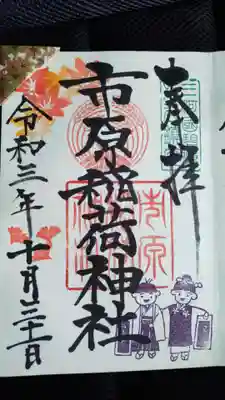 奉拝
市原稲荷神社
令和三年十月三十一日